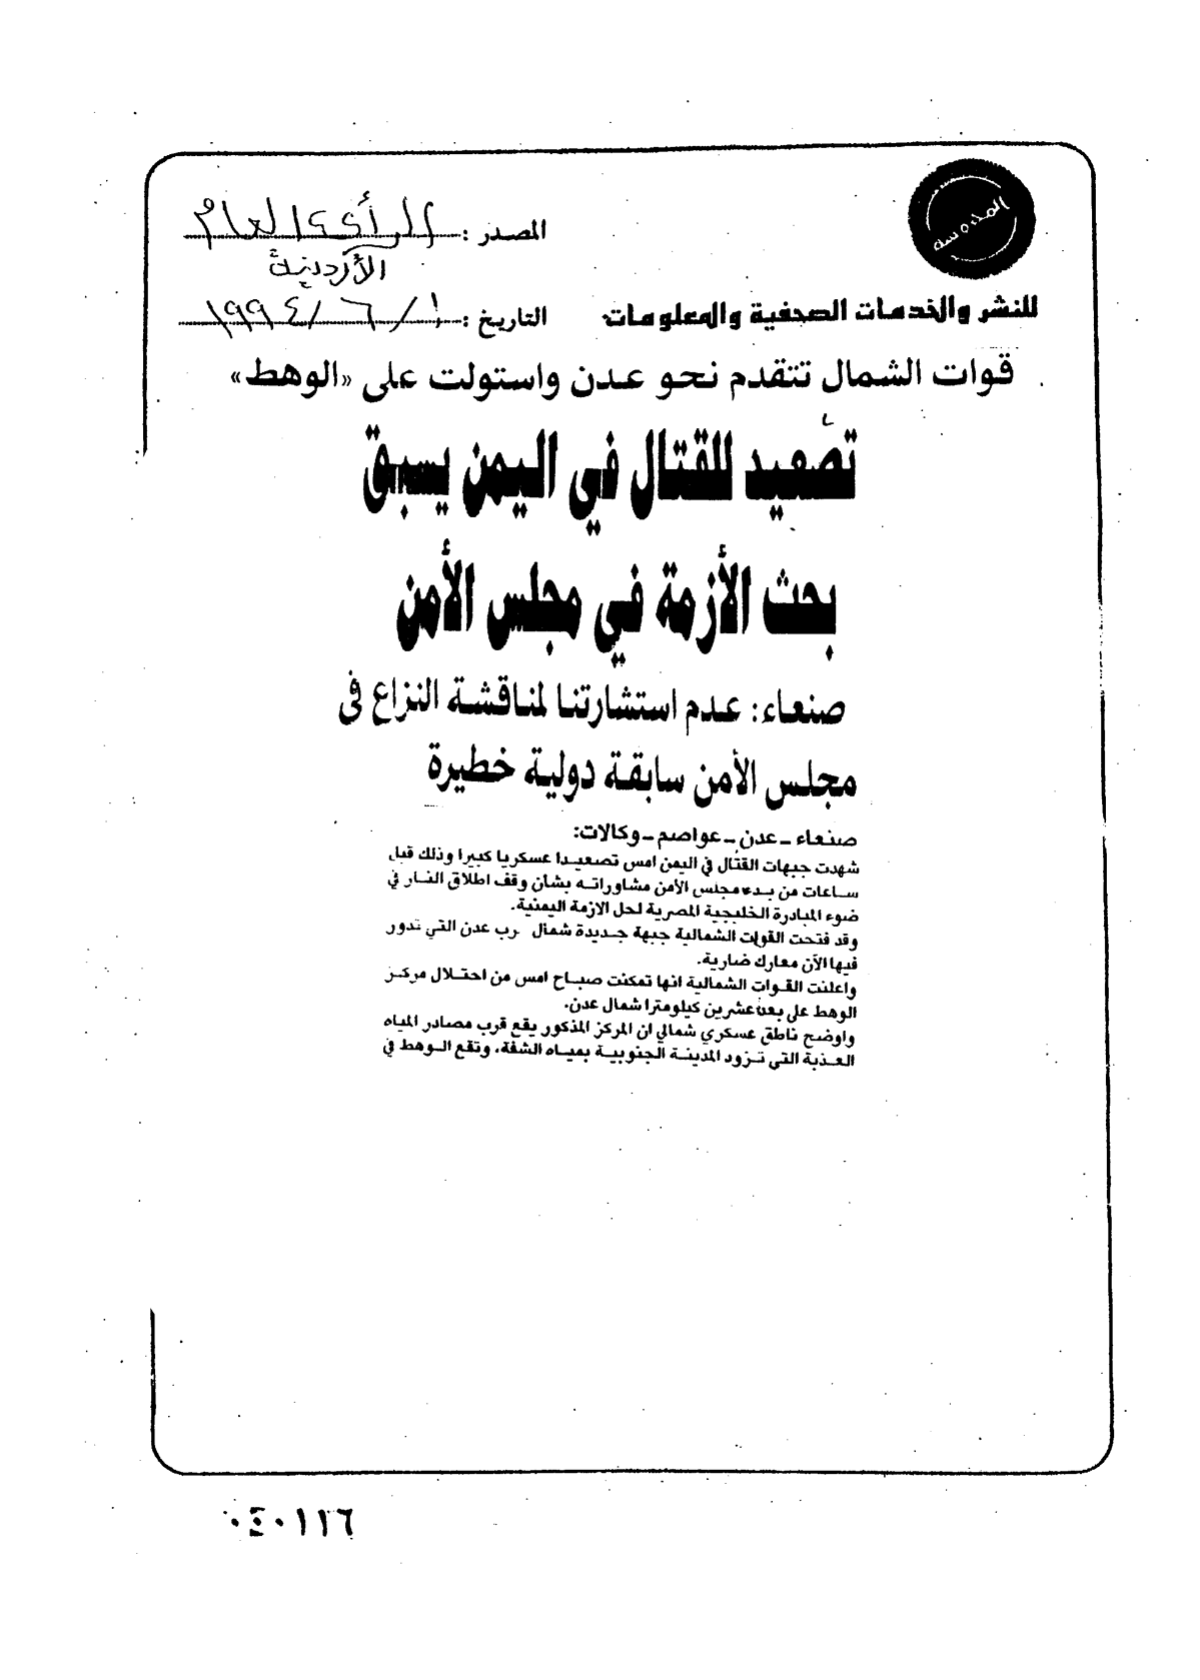 المحروسة
المصدر : الرأي العام
الأردنية
للنشر والخدمات الصحفية والمعلومات
التاريخ : ١ / ٦ / ١٩٩٤
قوات الشمال تتقدم نحو عدن واستولت على «الوهط»
تصعيد للقتال في اليمن يسبق
بحث الأزمة في مجلس الأمن
صنعاء: عدم استشارتنا لمناقشة النزاع فى
مجلس الأمن سابقة دولية خطيرة
صنعاء ـ عدن ـ عواصم ـ وكالات:
شهدت جبهات القتال في اليمن امس تصعيدا عسكريا كبيرا وذلك قبل
ساعات من بدء مجلس الأمن مشاوراته بشأن وقف اطلاق النار في
ضوء المبادرة الخليجية المصرية لحل الازمة اليمنية.
وقد فتحت القوات الشمالية جبهة جديدة شمال رب عدن التي تدور
فيها الآن معارك ضارية.
واعلنت القوات الشمالية انها تمكنت صباح امس من احتلال مركز
الوهط على بعد عشرين كيلومترا شمال عدن.
واوضح ناطق عسكري شمالي ان المركز المذكور يقع قرب مصادر المياه
العذبة التي تزود المدينة الجنوبية بمياه الشفة، وتقع الوهط في